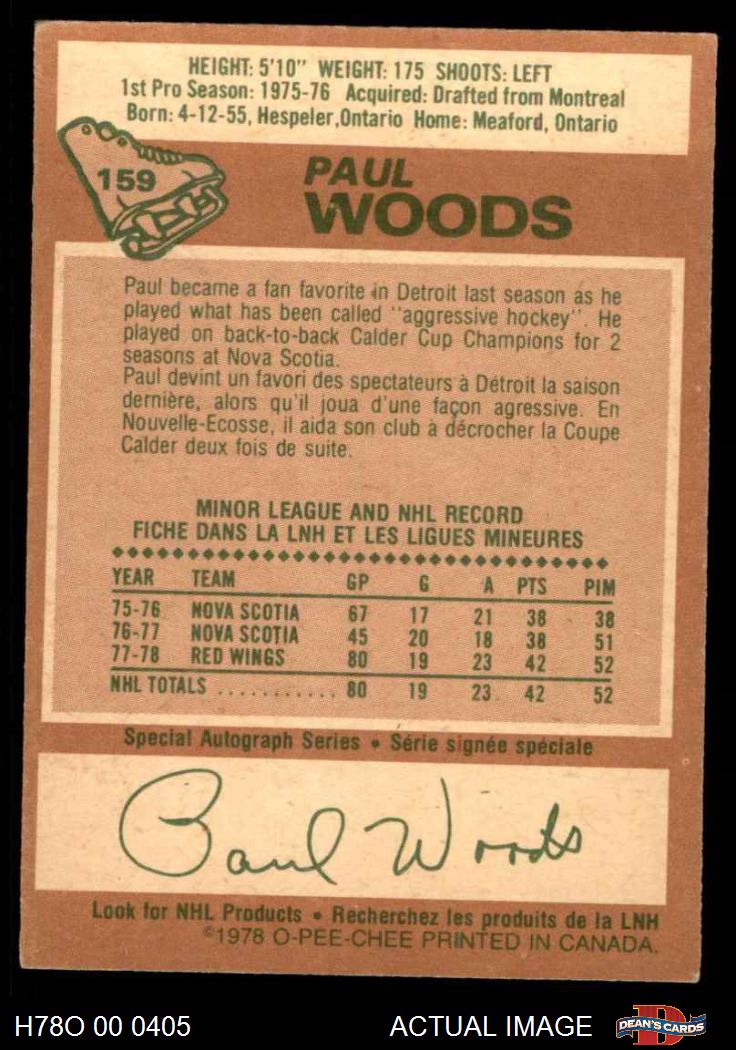 HEIGHT: 5'10" WEIGHT: 175 SHOOTS: LEFT
1st Pro Season: 1975-76 Acquired: Drafted from Montreal
Born: 4-12-55, Hespeler, Ontario Home: Meaford, Ontario
159
PAUL
WOODS
Paul became a fan favorite in Detroit last season as he
played what has been called "aggressive hockey". He
played on back-to-back Calder Cup Champions for 2
seasons at Nova Scotia.
Paul devint un favori des spectateurs à Détroit la saison
dernière, alors qu'il joua d'une façon agressive. En
Nouvelle-Ecosse, il aida son club à décrocher la Coupe
Calder deux fois de suite.
MINOR LEAGUE AND NHL RECORD
FICHE DANS LA LNH ET LES LIGUES MINEURES
YEAR TEAM GP G A PTS PIM
75-76 NOVA SCOTIA 67 17 21 38 38
76-77 NOVA SCOTIA 45 20 18 38 51
77-78 RED WINGS 80 19 23 42 52
NHL TOTALS ........... 80 19 23 42 52
Special Autograph Series • Série signée spéciale
Paul Woods
Look for NHL Products • Recherchez les produits de la LNH
©1978 O-PEE-CHEE PRINTED IN CANADA.
H78O 00 0405 ACTUAL IMAGE D DEAN'S CARDS